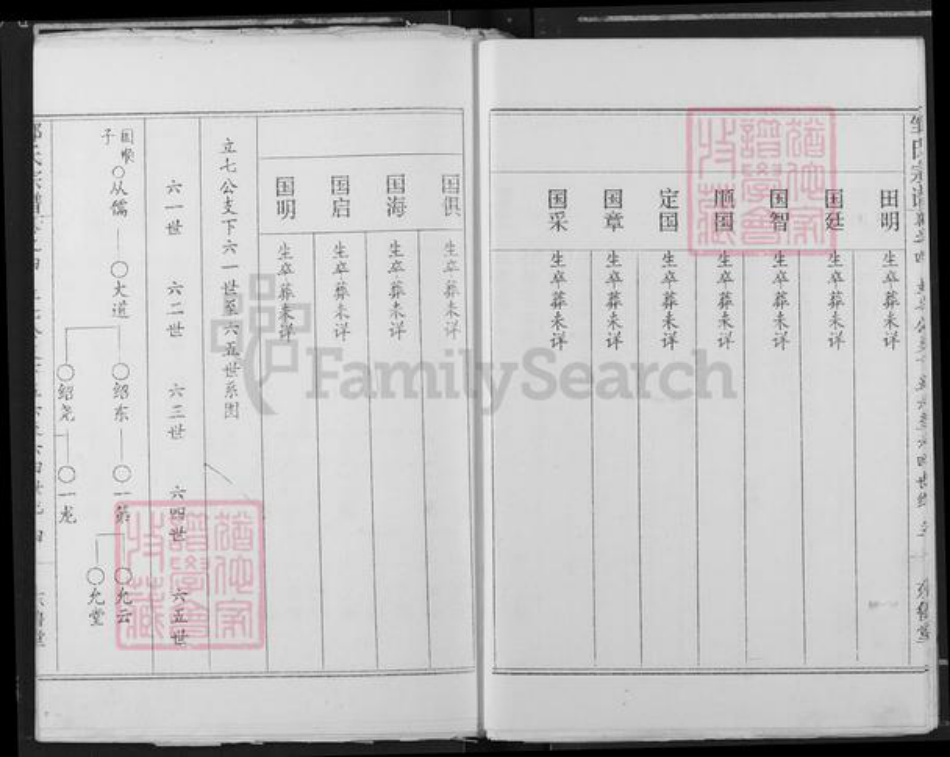 田明
生卒葬未详
国廷
生卒葬未详
国智
生卒葬未详
顺国
生卒葬未详
定国
生卒葬未详
国章
生卒葬未详
国采
生卒葬未详
国俱
生卒葬未详
国海
生卒葬未详
国启
生卒葬未详
国明
生卒葬未详
立七公支下六一世至六五世系图
六一世 六二世 六三世 六四世 六五世
国顺子
从儒
大道
绍东
一第
允云
允堂
绍尧
一龙
猶他家譜學會收藏
猶他家譜學會收藏
FamilySearch